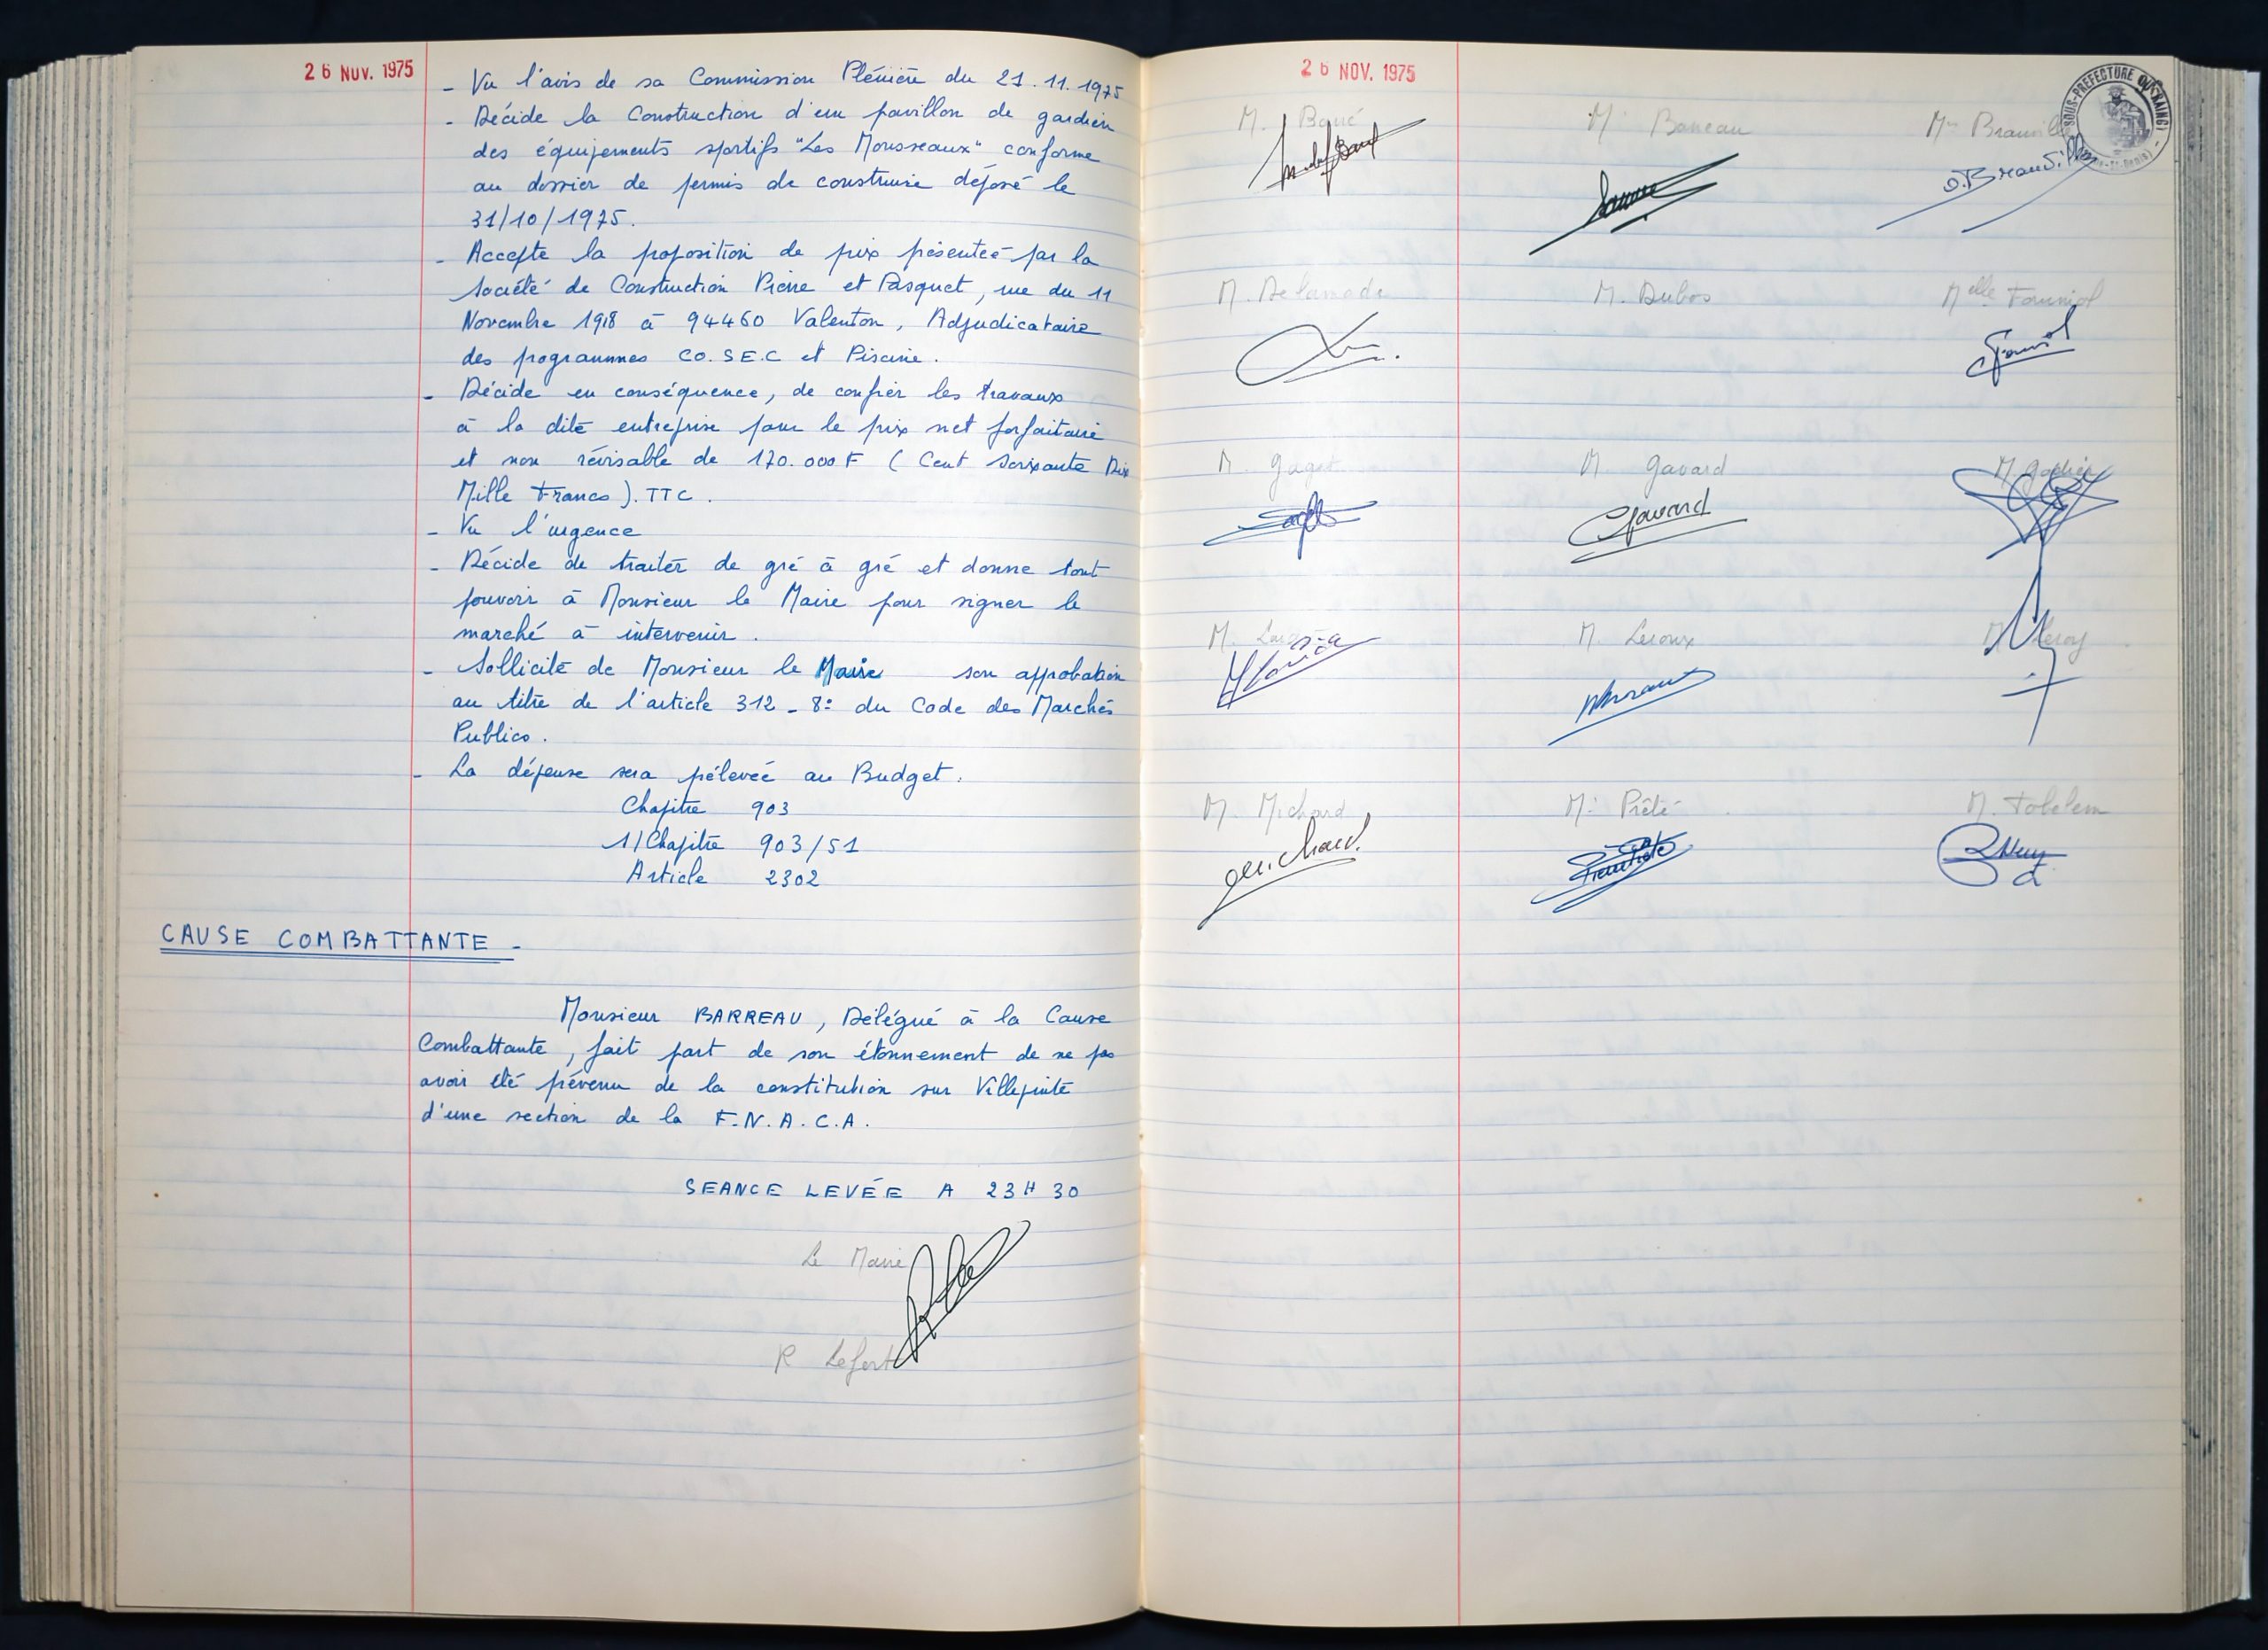 26 NOV. 1975
- Vu l'avis de sa Commission Plénière du 21.11.1975
- Décide la Construction d'un pavillon de gardien
des équipements sportifs "Les Mousseaux" conforme
au dossier de permis de construire déposé le
31/10/1975.
- Accepte la proposition de prix présentée par la
Société de Construction Pierre et Pasquet, rue du 11
Novembre 1918 à 94460 Valenton, Adjudicataire
des programmes CO.SE.C et Piscine.
- Décide en conséquence, de confier les travaux
à la dite entreprise pour le prix net forfaitaire
et non révisable de 170.000 F (Cent Soixante Dix
Mille Francs). TTC.
- Vu l'urgence
- Décide de traiter de gré à gré et donne tout
pouvoir à Monsieur le Maire pour signer le
marché à intervenir.
- Sollicite de Monsieur le Maire son approbation
au titre de l'article 312 - 8° du Code des Marchés
Publics.
- La dépense sera prélevée au Budget.
Chapitre 903
1/Chapitre 903/51
Article 2302
CAUSE COMBATTANTE -
Monsieur BARREAU, Délégué à la Cause
Combattante, fait part de son étonnement de ne pas
avoir été prévenu de la constitution sur Villepinte
d'une section de la F.N.A.C.A.
SEANCE LEVÉE A 23H30
Le Maire
R Lefort
26 NOV. 1975
SOUS-PREFECTURE DU RAINCY
M. M. Barreau Mme
M. M. Dubos Melle Fourniol
Fourniol
M. Gaget M. Gavard M.
Gavard
M. M. Leroux M. Leroy
M. Michard M. Prêté M. Tobelem
Michard